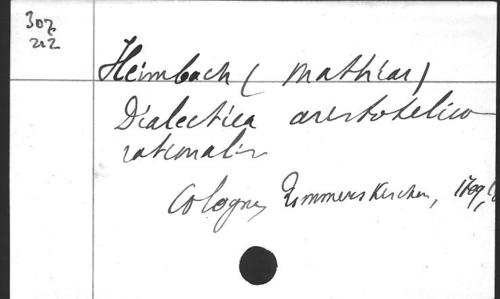 307
212
Heimbach (Mathias)
Dialectica aristotelico
rationalis
Cologne, Zimmerskirchen, 1709,